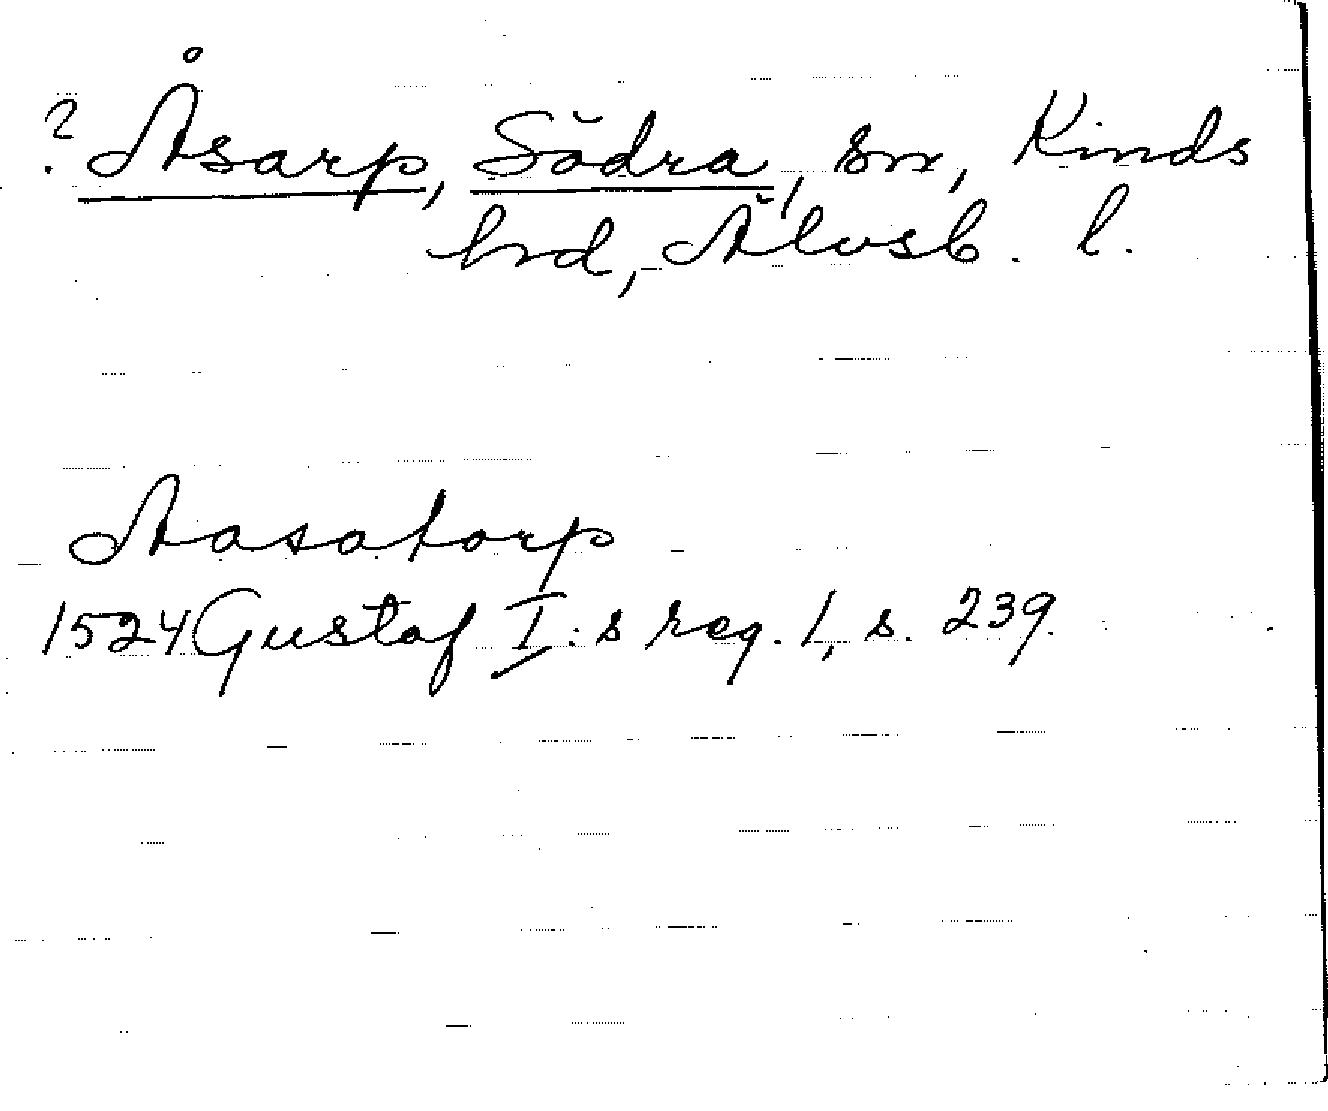 ? Åsarp, Södra, sn, Kinds
hrd, Älvsb. l.
Aasatorp
1524 Gustaf I:s reg. 1, s. 239.